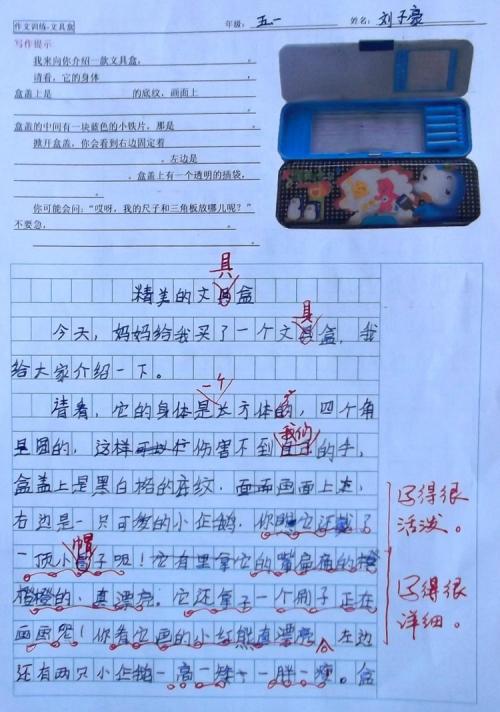 作文训练-文具盒 年级：五一 姓名：刘子豪
写作提示
我来向你介绍一款文具盒，
请看，它的身体 ，
盒盖上是 的底纹，画面上
盒盖的中间有一块蓝色的小铁片，那是 。
掀开盒盖，你会看到右边固定着
，左边是
，盒盖上有一个透明的插袋，
。
你可能会问：“哎呀，我的尺子和三角板放哪儿呢？”
不要急， 。
具
精美的文盒
具
今天，妈妈给我买了一个文盒，我
给大家介绍一下。
一个
请看，它的身体是长方体的，四个角
我们
是圆的，这样伤害不到自己的手，
盒盖上是黑白格的底纹，画面上
右边是一只可爱的小企鹅，你还戴了
帽
一顶小子呢！它有里拿它的嘴扁扁的橙
橙橙的，真漂亮。它还拿了一个刷子正在
画画呢！你看它画的小红熊真漂亮，左边
还有两只小企鹅一高一矮，一胖一瘦。盒
写得很
活泼。
写得很
详细。